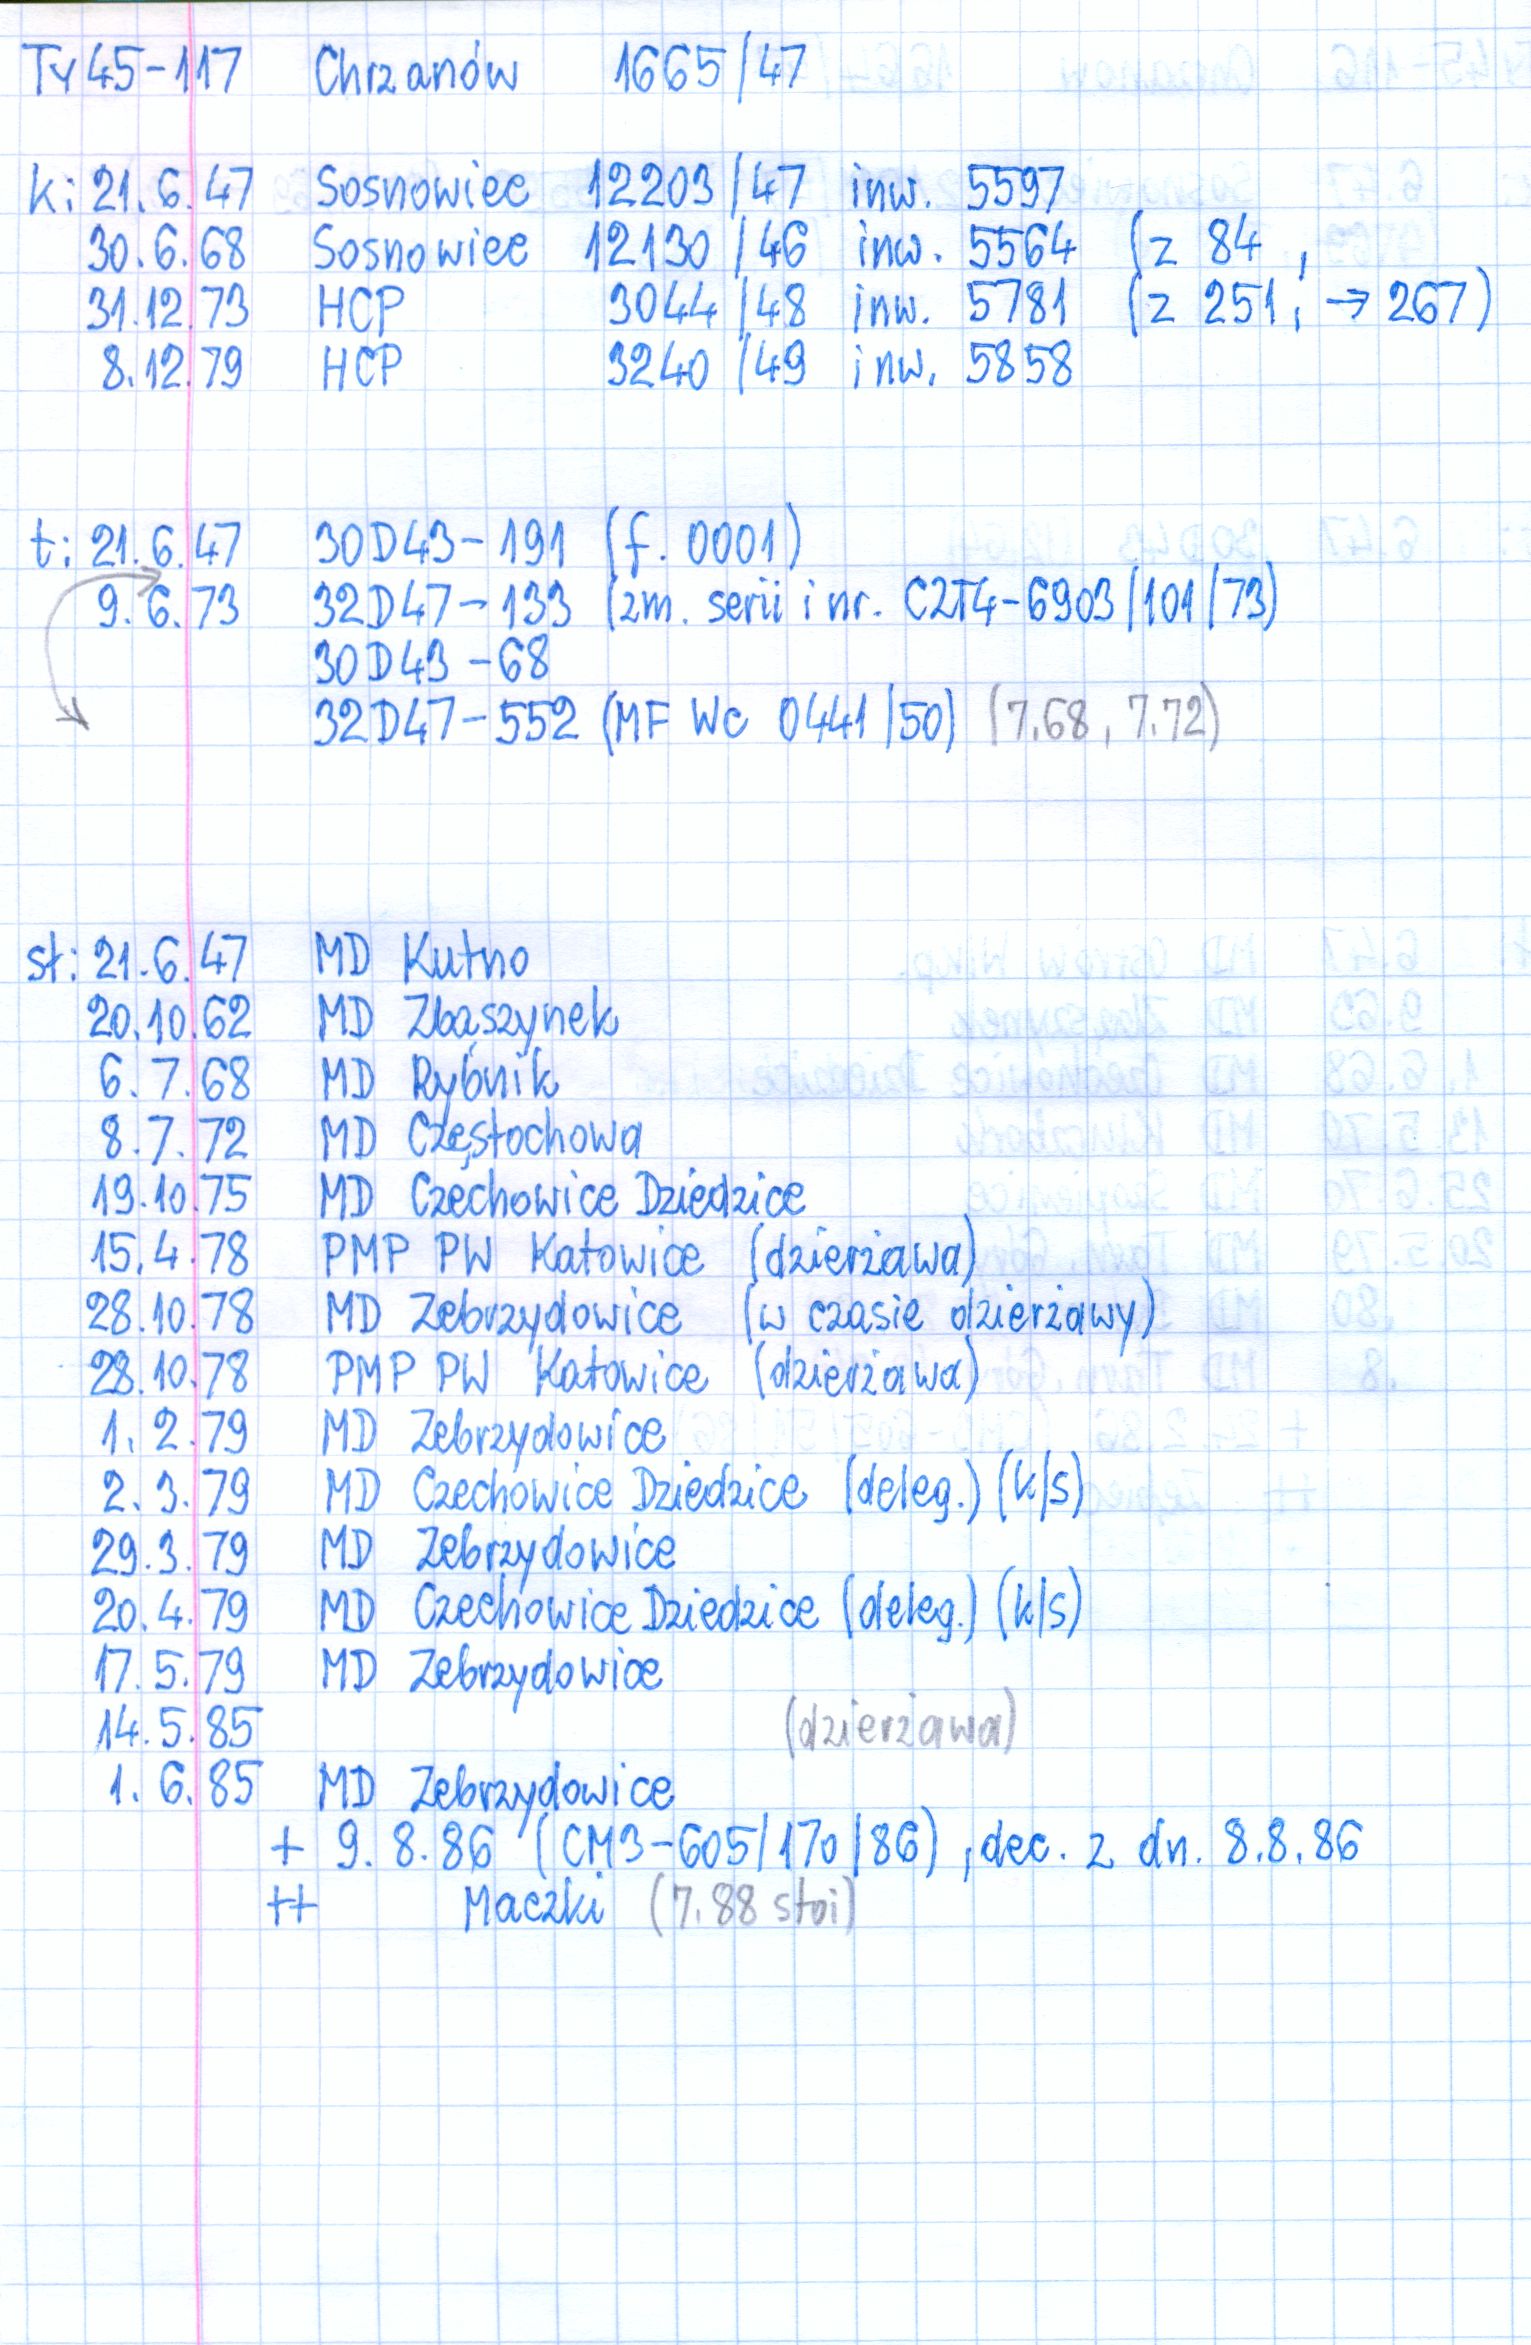 Ty45-117 Chrzanów 1665/47
k: 21.6.47 Sosnowiec 12203/47 inw. 5597
30.6.68 Sosnowiec 12130/46 inw. 5564 (z 84 ,
31.12.73 HCP 3044/48 inw. 5781 (z 251, → 267)
8.12.79 HCP 3240/49 inw. 5858
t: 21.6.47 30D43-191 (f. 0001)
9.6.73 32D47-133 (zm. serii i nr. C2T4-6903/101/73)
30D43-68
32D47-552 (MF Wc 0441/50) (7.68, 7.72)
st: 21.6.47 MD Kutno
20.10.62 MD Zbąszynek
6.7.68 MD Rybnik
8.7.72 MD Częstochowa
19.10.75 MD Czechowice Dziedzice
15.4.78 PMP PW Katowice (dzierżawa)
28.10.78 MD Zebrzydowice (w czasie dzierżawy)
28.10.78 PMP PW Katowice (dzierżawa)
1.2.79 MD Zebrzydowice
2.3.79 MD Czechowice Dziedzice (deleg.) (k/s)
29.3.79 MD Zebrzydowice
20.4.79 MD Czechowice Dziedzice (deleg.) (k/s)
17.5.79 MD Zebrzydowice
14.5.85 (dzierżawa)
1.6.85 MD Zebrzydowice
+ 9.8.86 (CM3-605/170/86), dec. z dn. 8.8.86
++ Maczki (7.88 stoi)